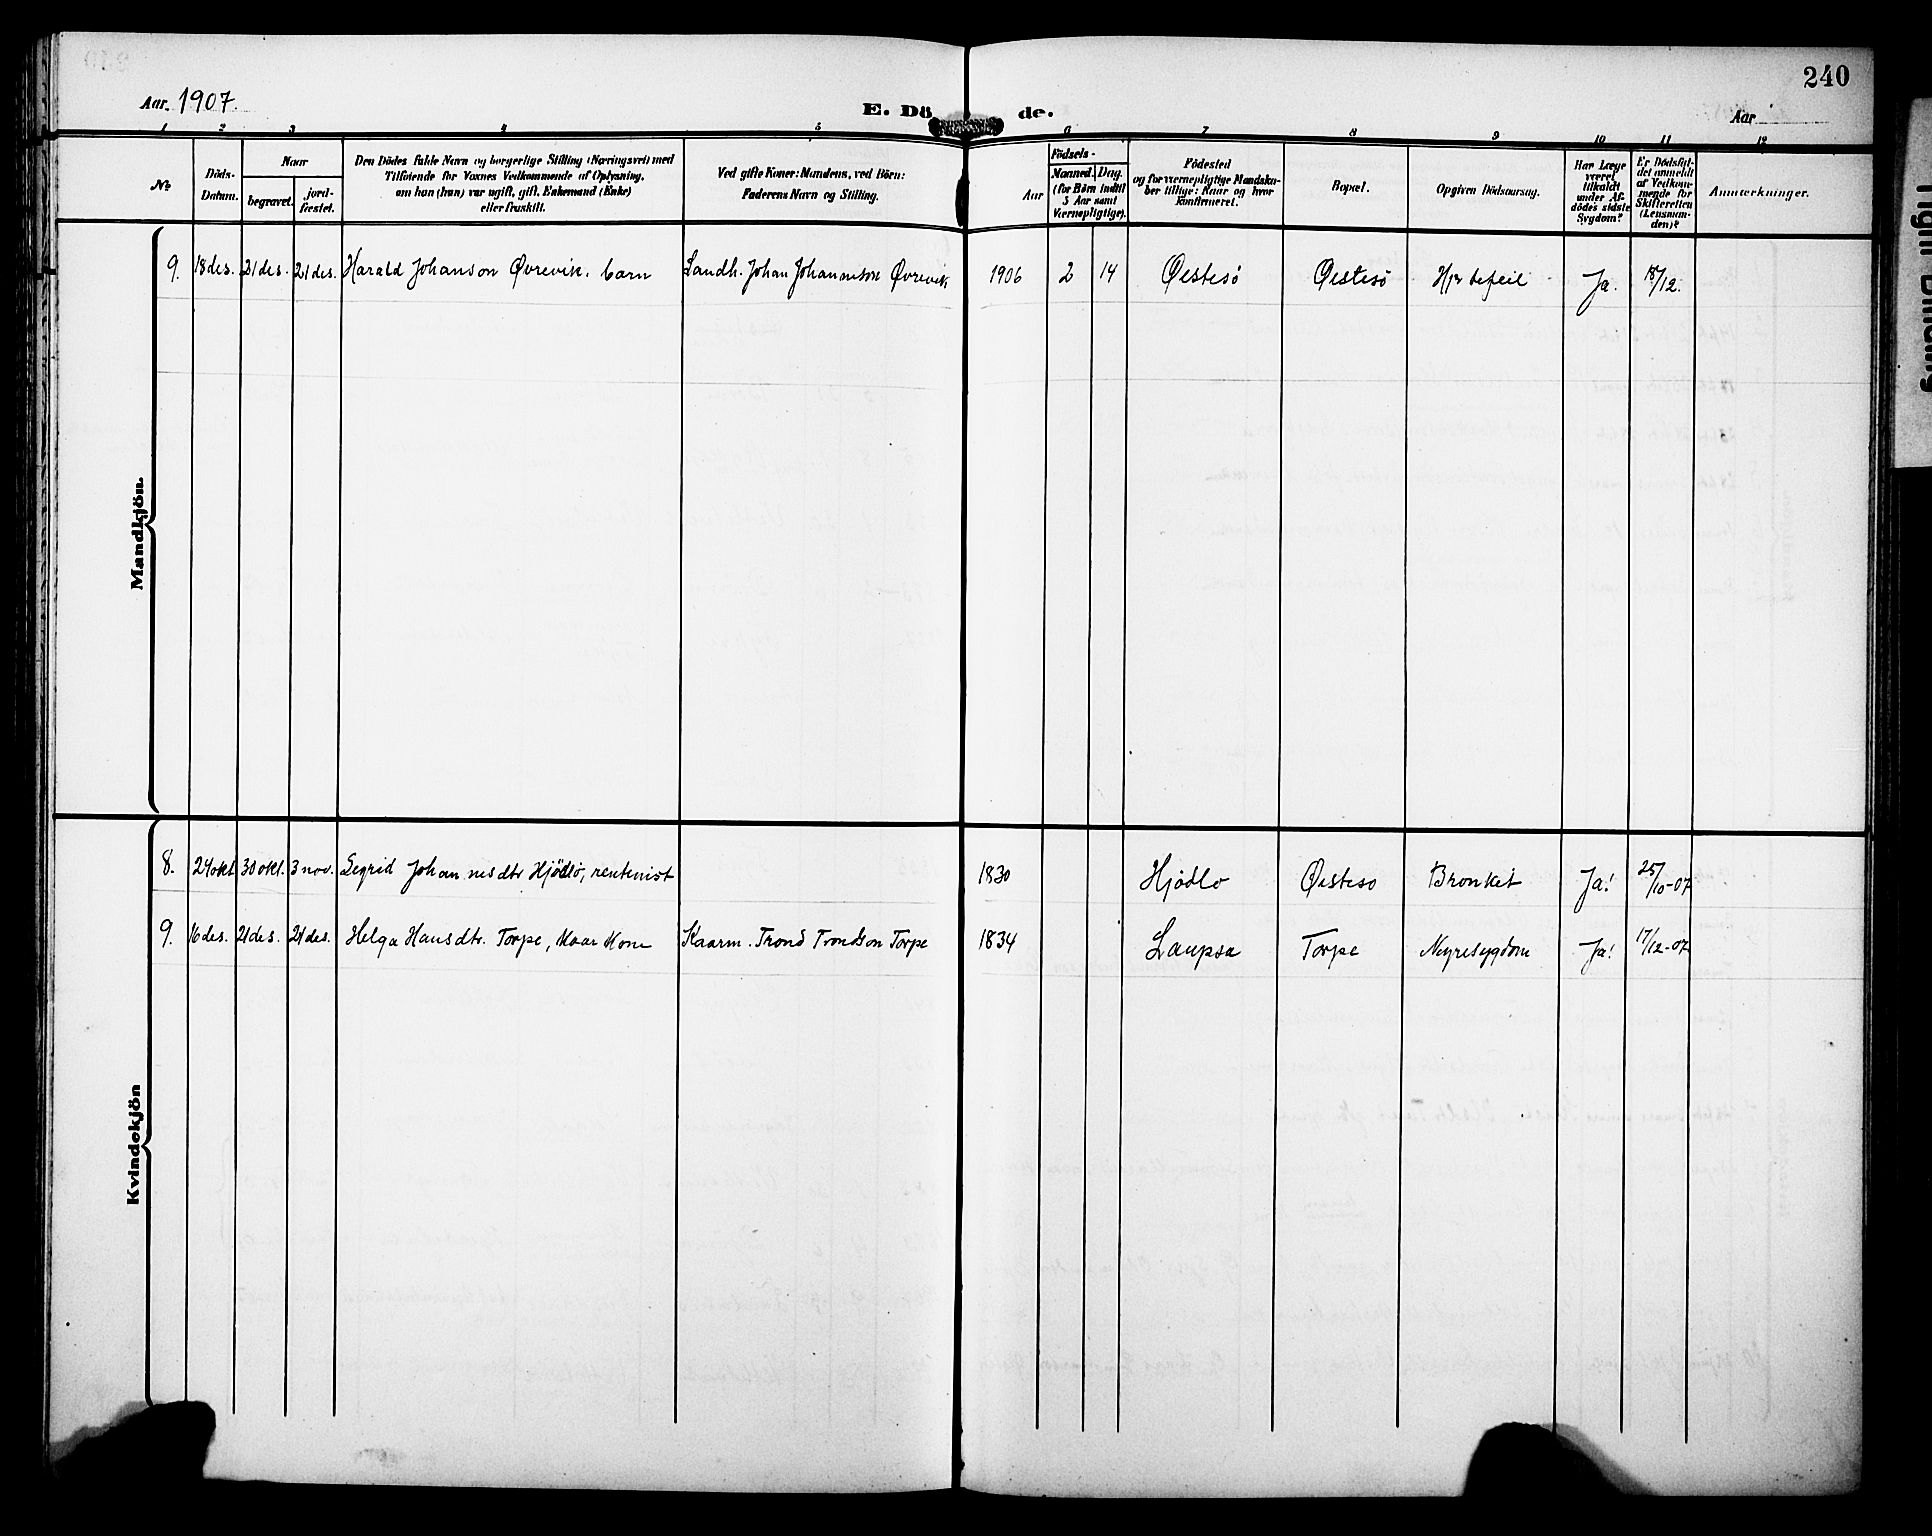 240
Aar. 1907.
E. Dö de.
Aar
1 2 3 4 5 6 7 8 9 10 11 12
No
Döds-Datum.
Naar
begravet.
jord-fæstet.
Den Dödes fulde Navn og borgerlige Stilling (Næringsvei) med
Tilföiende for Voxnes Vedkommende af Oplysning,
om hun (han) var ugift, gift, Enkemand (Enke)
eller fraskilt.
Ved gifte Koner: Mandens, ved Börn:
Faderens Navn og Stilling.
Födsels-
Aar
Maaned.
Dag.
(for Börn indtil
5 Aar samt
Værnepligtige).
Födested
og for værnepligtige Mandska-
ber tillige: Naar og hvor
konfirmeret.
Bopæl.
Opgiven Dödsaarsag.
Har Læge
været
tilkaldt
under Af-
dödes sidste
Sygdom?
Er Dödsfal-
det anmeldt
af Vedkom-
mende for
Skifteretten
(Lensman-
den)?
Anmærkninger.
Mandkjön.
9. 18 des. 21 des. 21 des. Harald Johanson Øvrevik, barn Landh. Johan Johannesson Øvrevik 1906 2 14 Østesö Østesö Hjertefeil Ja. 18/12.
Kvindekjön
8. 24 okt. 30 okt. 3 nov. Sigrid Johannesdtr Hjödlo, rentenist 1830 Hjödlo Østeso Bronket Ja! 25/10-07
9. 16 des. 21 des. 21 des. Helga Hansdtr. Torpe, Kaar Kone Kaarm. Trond Trondson Torpe 1834 Laupsa Torpe Nyresygdom Ja! 17/12-07